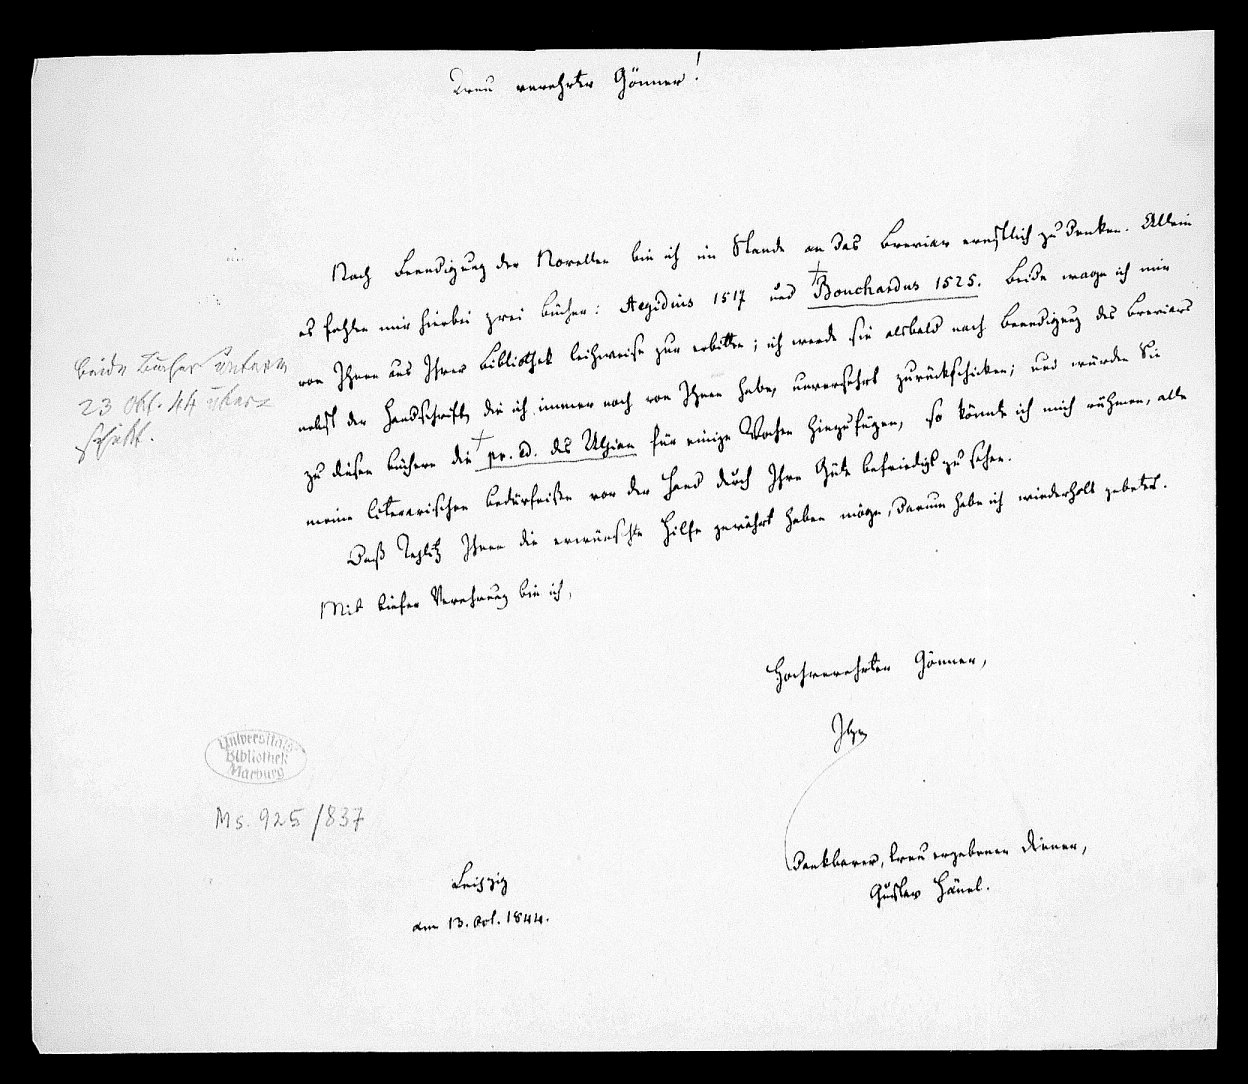 Treu verehrter Gönner!
Nach Beendigung der Novellen bin ich im Stande an das Breviar ernstlich zu denken. Allein
es fehlen mir hierbei zwei Bücher: Aegidius 1517 und Bouchardus 1525. Beide wage ich mir
von Ihnen aus Ihrer Bibliothek leihweise zu erbitten; ich werde sie alsbald nach Beendigung des Breviars
nebst der Handschrift, die ich immer noch von Ihnen habe, unversehrt zurückschicken; und würden Sie
zu diesen Büchern die pr. ed. des Ulpian für einige Wochen hinzufügen, so könnte ich mich rühmen, alle
meine literarischen Bedürfnisse vor der Hand durch Ihre Güte befriedigt zu sehen.
Daß Teplitz Ihnen die erwünschte Hilfe gewährt haben möge, darum habe ich wiederholt gebetet.
Mit tiefer Verehrung bin ich,
Hochverehrter Gönner,
Ihr
dankbarer, treu ergebener Diener,
Gustav Hänel.
Leipzig
am 13. Oct. 1844.
beide Bücher unterm
23 Okt. 44 über=
schickt.
Universitäts
Bibliothek
Marburg
Ms. 925/837